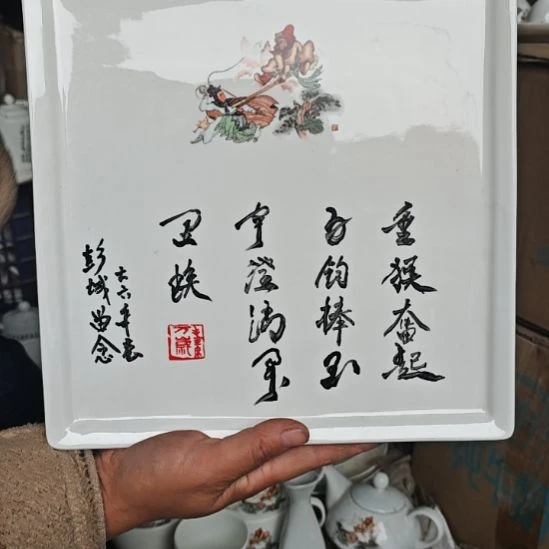 金猴奮起
千钧棒玉
宇澄清万
里埃
六六年春
彭城留念